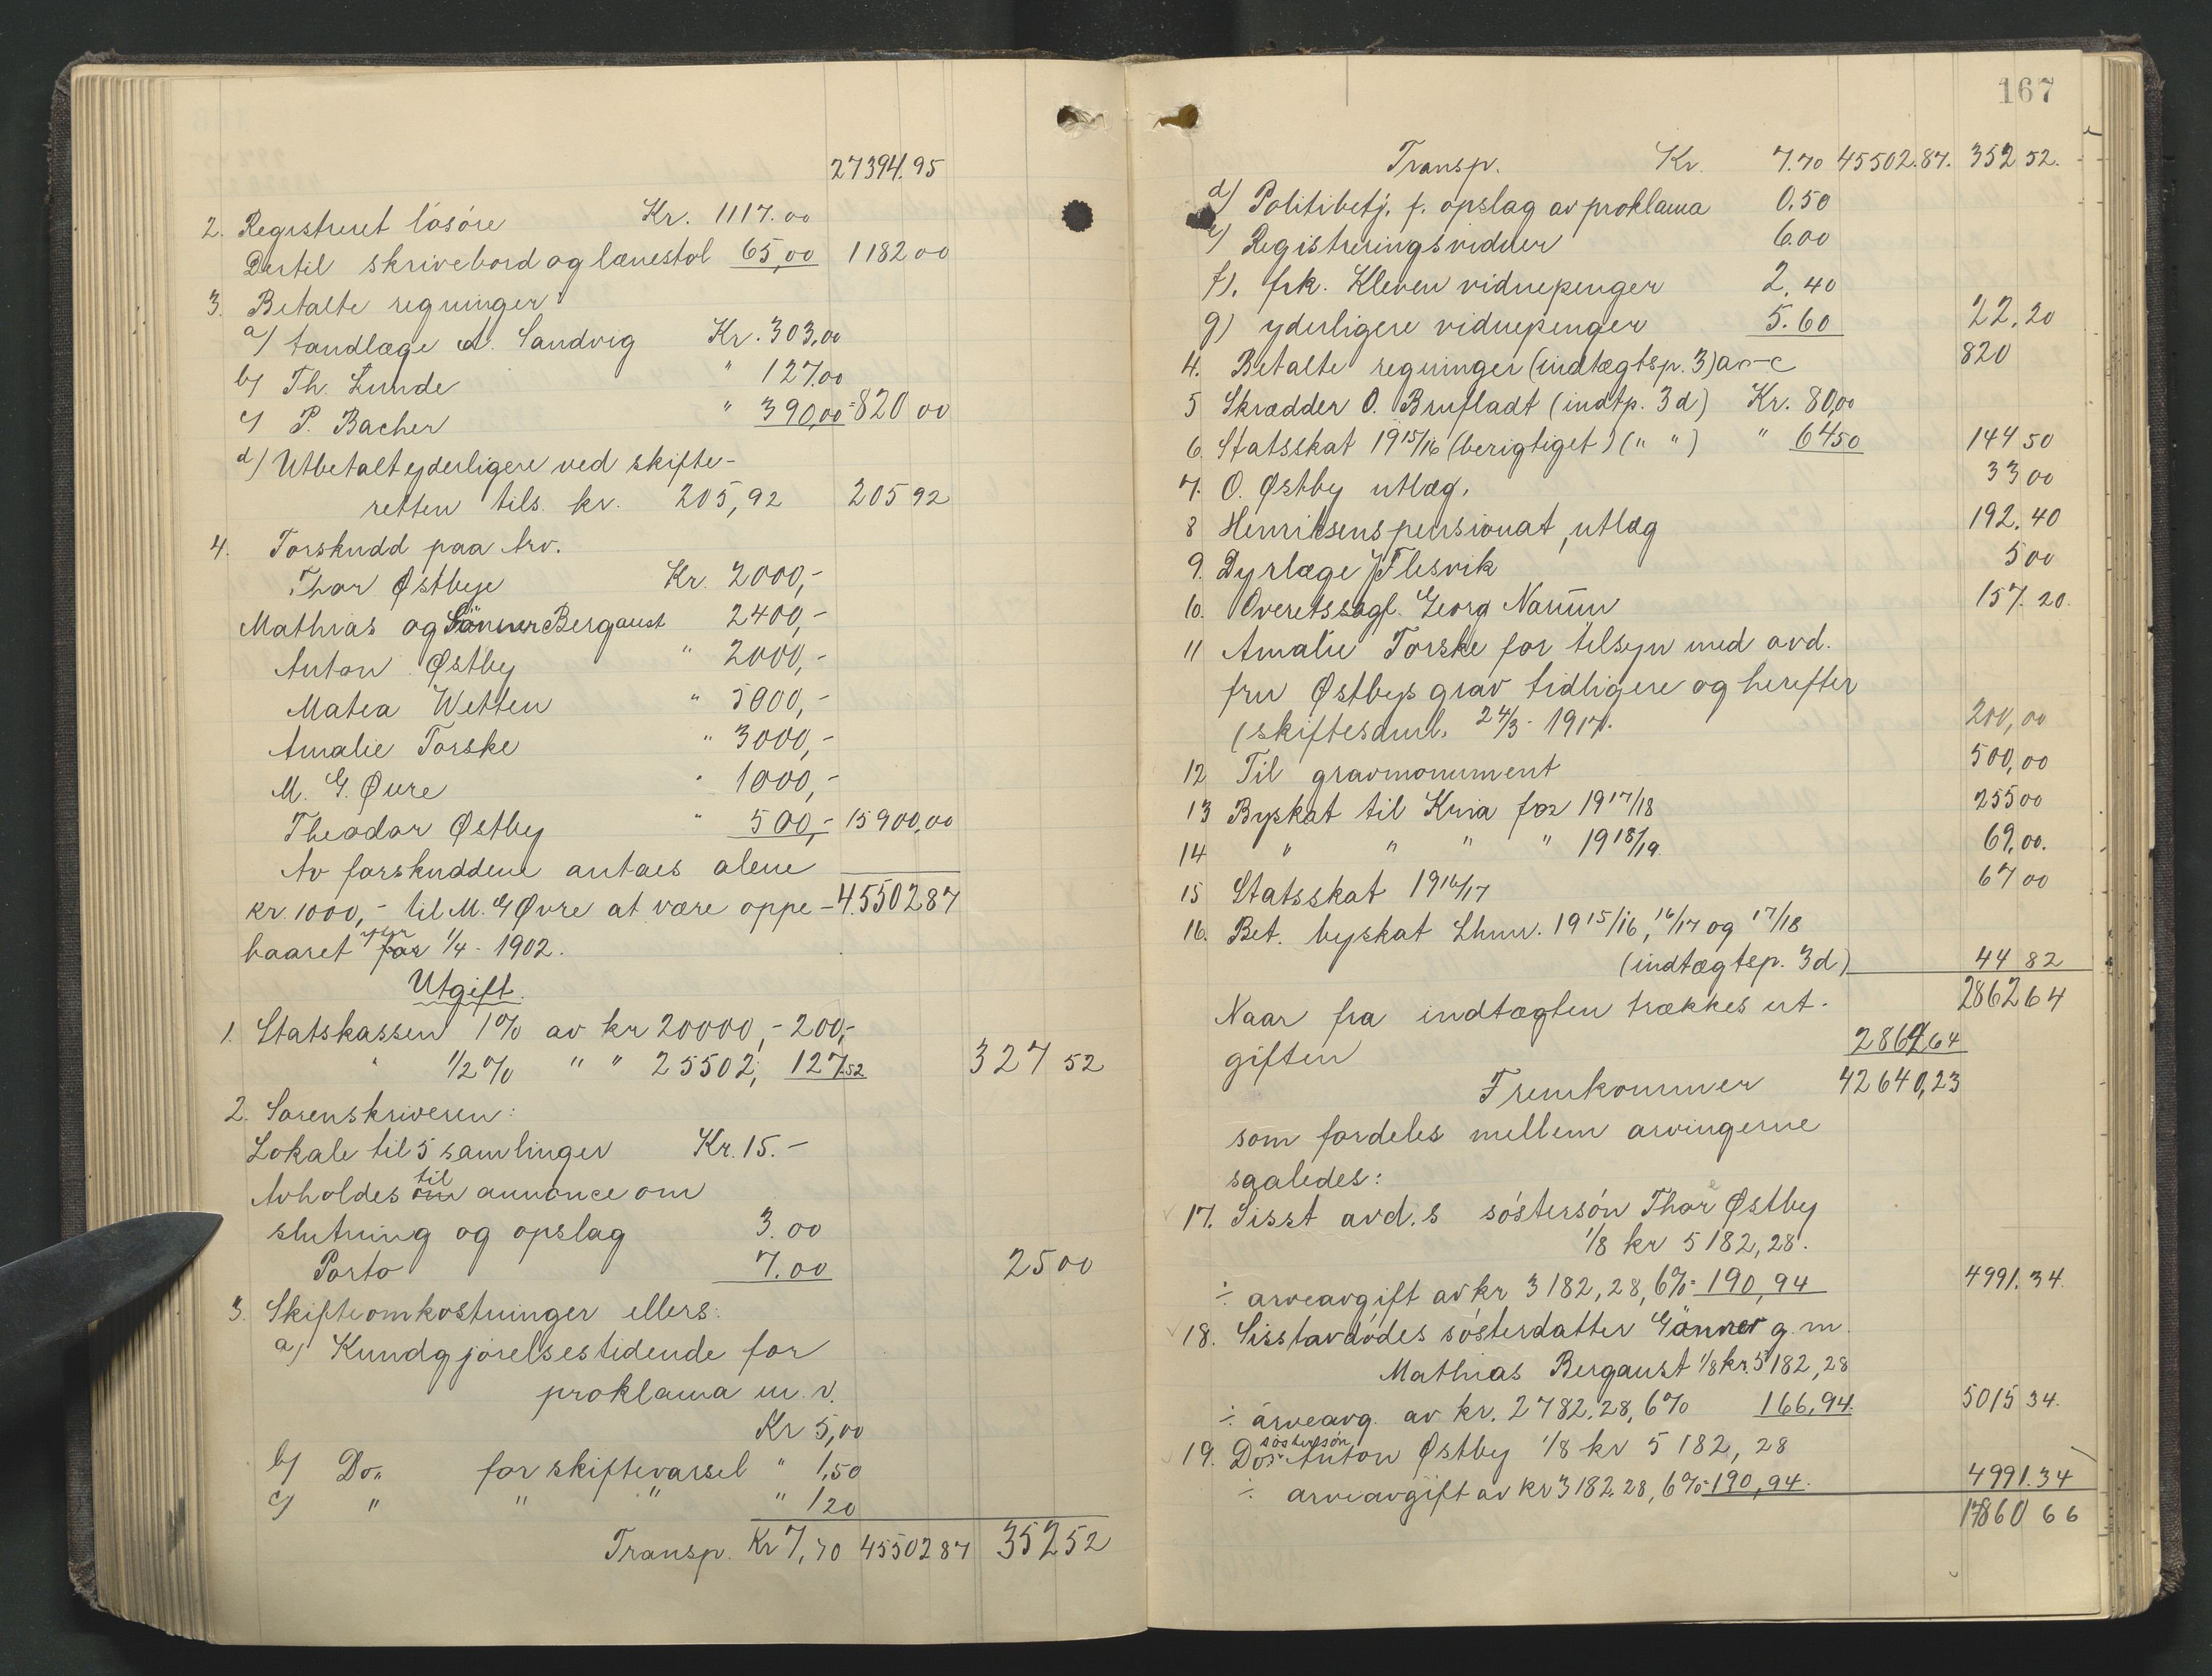 27394.95
2. Registreret lösöre Kr. 1117.00
Dertil skrivebord og lænestol 65,00 1182 00
3. Betalte regninger:
a) tandlæge A. Sandvig Kr. 303,00
b) Th. Lunde " 127.00
c) P. Bacher " 390,00 = 820 00
d) Utbetalt yderligere ved skifte-
retten tils. kr. 205,92 205 92
4. Forskudd paa Arv.
Thor Østbye Kr. 2000,-
Mathias og Bergaust 2400,-
Anton Østby " 2000,-
Matea Wetten " 5000,-
Amalie Torske " 3000,-
M. G. Øvre " 1000,-
Theodor Østby " 500,- 15900,00
Av forskuddene antaes alene
kr. 1000,- til M. G Øvre at være oppe- 45502 87
baaret för 1/4 - 1902.
Utgift.
1. Statskassen 1% av kr 20000,- 200,-
" 1/2% " " 25502, 127.52 327 52
2. Sorenskriveren:
Lokale til 5 samlinger Kr. 15.-
Avholdes om til annonce om
slutning og opslag 3.00
Porto 7.00 25 00
3. Skifteomkostninger ellers:
a) Kundgjørelsestidende for
proklama m. v.
Kr 5,00
b) Do. for skiftevarsel " 1,50
c) " " " " 1 20
Transp. Kr 7,70 45502 87 352 52
167
Transp. Kr. 7.70 45502.87. 352 52.
d) Politibetj. f. opslag av proklama 0.50
e) Registreringsvidner 6.00
f). frk. Kleven vidnepenger 2.40
g) yderligere vidnepenger 5.60 22.20
4. Betalte regninger (indtægtsp. 3) a-c 820
5 Skrædder O. Brufladt (indtp. 3 d) Kr. 80,00
6. Statsskat 1915/16 (berigtiget) (" ") " 64 50 144 50
7. O. Østby utlæg. 33 00
8 Henriksens pensionat, utlæg 192.40
9. Dyrlæge J Flesvik 5 00
10. Overetssagf. Georg Narum 157.20.
11 Amalie Torske for tilsyn med avd.
fru Østbys grav tidligere og herefter
(skiftesaml. 24/3 - 1917. 200,00
12 Til gravmonument 500,00
13 Byskat til Kria for 1917/18 255 00
14 " " " " 1918/19. 69,00.
15 Statsskat 1916/17 67 00
16. Bet. byskat Lhmr. 1915/16, 16/17 og 17/18
(indtægtsp. 3d) 44 82
Naar fra indtægten trækkes ut- 2862 64
giften 2862 64
Fremkommer 42640,23
som fordeles mellem arvingerne
saaledes:
17. Sisst avd.s söstersön Thor Østby
1/8 kr 5182,28.
÷ arveavgift av kr 3182,28, 6% 190,94 4991.34
18. Sisstavdödes sösterdatter g. m.
Mathias Bergaust 1/8 kr. 5182,28
÷ arveavg. av kr. 2782.28, 6% 166,94. 5015 34.
19. Dos söstersön Anton Østby 1/8 kr 5182,28
÷ arveavgift av kr 3182.28, 6% 190,94. 4991.34
17860 66